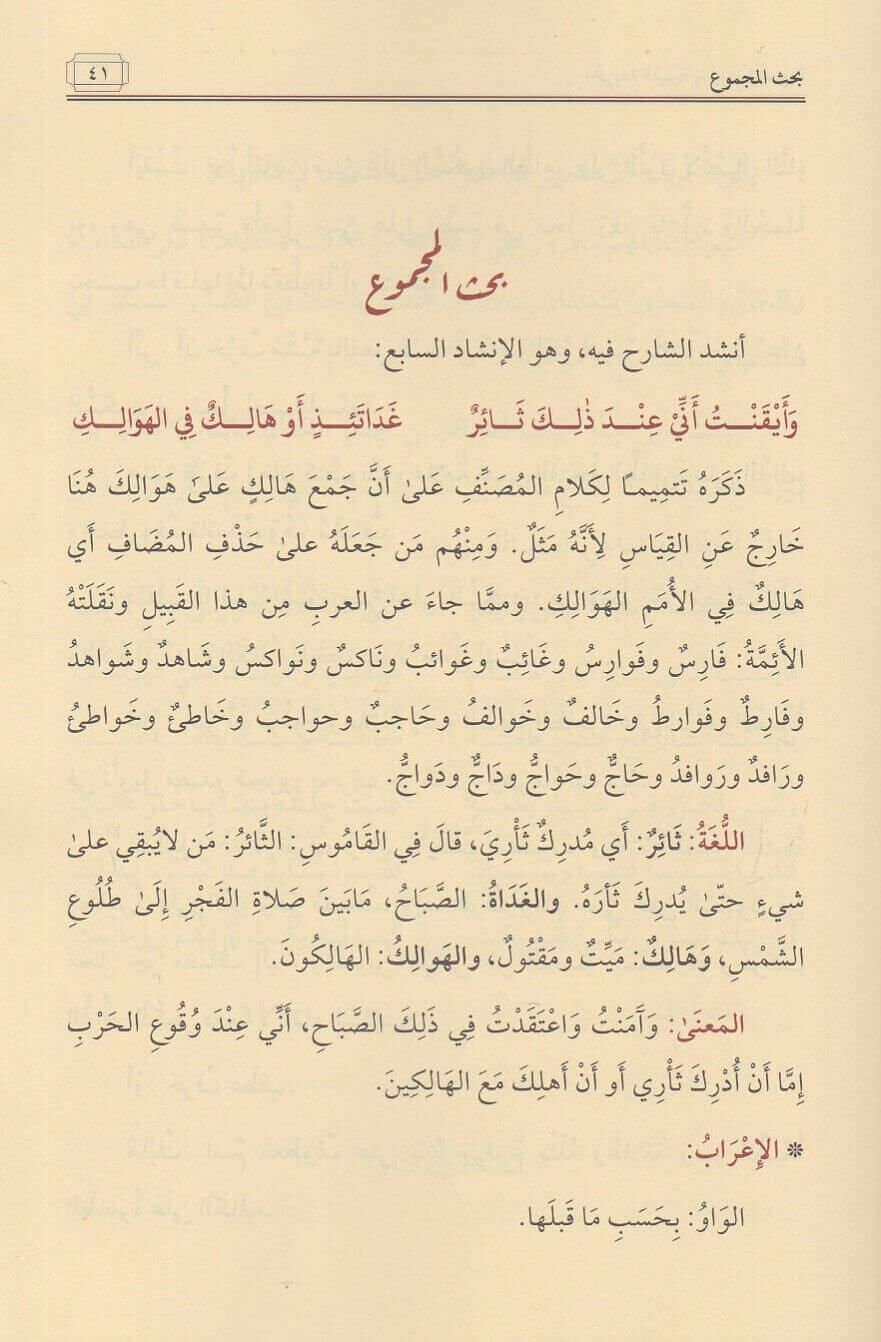 بحث المجموع
٤١
بحث المجموع
أنشد الشارح فيه، وهو الإنشاد السابع:
وَأَيْقَنْتُ أَنِّيْ عِنْدَ ذٰلِكَ ثَائِرٌ غَدَاتَئِذٍ أَوْ هَالِكٌ فِي الهَوَالِكِ
ذَكَرَهُ تَتمِيمًا لِكَلامِ المُصَنِّفِ عَلىٰ أَنَّ جَمْعَ هَالِكٍ عَلىٰ هَوَالِكَ هُنَا
خَارِجٌ عَنِ القِيَاسِ لِأَنَّهُ مَثَلٌ. وَمِنْهُم مَن جَعَلَهُ علىٰ حَذْفِ المُضَافِ أَي
هَالِكٌ فِي الأُمَمِ الهَوَالِكِ. وممَّا جاءَ عن العربِ مِن هذا القَبِيلِ ونَقَلَتْهُ
الأَئِمَّةُ: فَارِسٌ وفَوارِسُ وغَائِبٌ وغَوائبُ ونَاكسٌ ونَواكسُ وشَاهدٌ وشَواهدُ
وفَارِطٌ وفَوارطُ وخَالفٌ وخَوالفُ وحَاجبٌ وحواجبُ وخَاطئٌ وخَواطئُ
ورَافدٌ ورَوافدُ وحَاجٌّ وحَواجُّ ودَاجٌّ ودَواجُّ.
اللُّغَةُ: ثَائِرٌ: أَي مُدرِكٌ ثَأْرِيَ، قالَ فِي القَامُوسِ: الثَّائرُ: مَن لايُبقِي علىٰ
شيءٍ حتّىٰ يُدرِكَ ثَأرَهُ. والغَدَاةُ: الصَّبَاحُ، مَابَينَ صَلاةِ الفَجْرِ إِلَىٰ طُلُوعِ
الشَّمْسِ، وَهَالِكٌ: مَيِّتٌ ومَقْتُولٌ، والهَوالِكُ: الهَالِكُونَ.
المَعنَىٰ: وَآمَنْتُ وَاعْتَقَدْتُ فِي ذَلِكَ الصَّبَاحِ، أَنِّي عِنْدَ وُقُوعِ الحَرْبِ
إِمَّا أَنْ أُدْرِكَ ثَأْرِي أَو أَنْ أَهلِكَ مَعَ الهَالِكِينَ.
* الإِعْرَابُ:
الوَاوُ: بِحَسَبِ مَا قَبلَها.